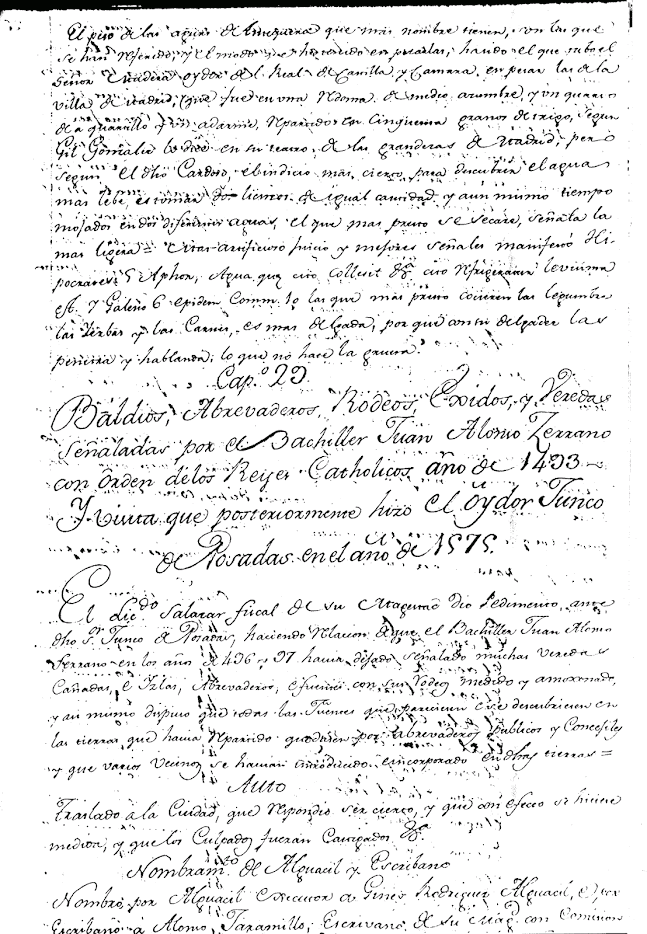 El peso de las aguas de Antequera que mas nombre tienen, son las que
se han referido, y el modo que he tenido en pesarlas, ha sido el que tubo el
Señor oydor del Real de Castilla, y Camara en pesar las de la
villa de Madrid, que fue en una redoma de medio azumbre, y un quarto
de quartillo y un adarme, repartidos en cinquenta granos de trigo, segun
Gil Gonzalez lo dice en su teatro de las grandezas de Madrid; pero
segun el dho Cardoso, el indicio mas cierto para descubrir el agua
mas lebe, es tomar dos liencos de igual cantidad, y a un mismo tiempo
mojados en dos diferentes aguas, el que mas presto se secare, señala la
mas ligera = artificioso juicio y mejores señales manifesto Hi-
pocrates 5 Aphor, Aqua, que cito &a cito levissima
est. y Galeno 6 epidem Comm. 10 las que mas presto cocieren las legumbres
las Yerbas y las Carnes, es mas delgada; por que con su delgadez las
penetra y hablanda, lo que no hace la gruesa.
Cap.o 29.
Baldios, Abrevaderos, Rodeos, Exidos, y Veredas
señaladas por el Bachiller Juan Alonso Serrano
con Orden de los Reyes Catholicos, año de 1493
Y visita que posteriormente hizo el Oydor Junco
de Posadas en el año de 1575.
El Lic.do Salazar fiscal de su Magestad dio Pedimento, ante
dho Sr Junco de Posadas, haciendo relacion de que el Bachiller Juan Alonso
Serrano en los años de 496 y 97 havia dejado señalado muchas veredas
Cañadas, e Yzlas, Abrevaderos, e fuentes con sus Rodeos medido y amojonado,
y asi mismo dispuso que todas las Fuentes que pareciesen o se descubriesen en
las tierras que havia repartido quedasen por Abrevaderos publicos y Concejiles
y que varios Vecinos se havian introducido e incorporado en dhas tierras =
Auto
Traslado a la Ciudad, que respondio ser cierto, y que con efecto se hiciese
medida, y que los Culpados fueran Castigados &a
Nombram.to de Alguacil y Escribano
Nombró por Alguacil executor a Gines Rodriguez Alguacil, e por
Escribano a Alonso Jaramillo, Escrivano de su Mag.d con Comision